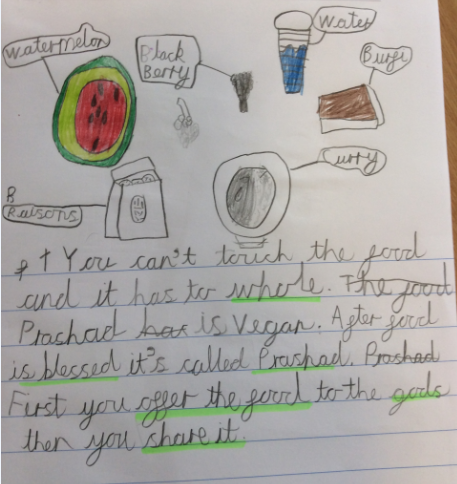 Watermelon
Black
Berry
Water
Burfi
Curry
B
Raisons
You can't touch the food
and it has to whole. The food
Prashad has is Vegan. After food
is blessed it's called Prashad. Prashad
First you offer the food to the gods
then you share it.